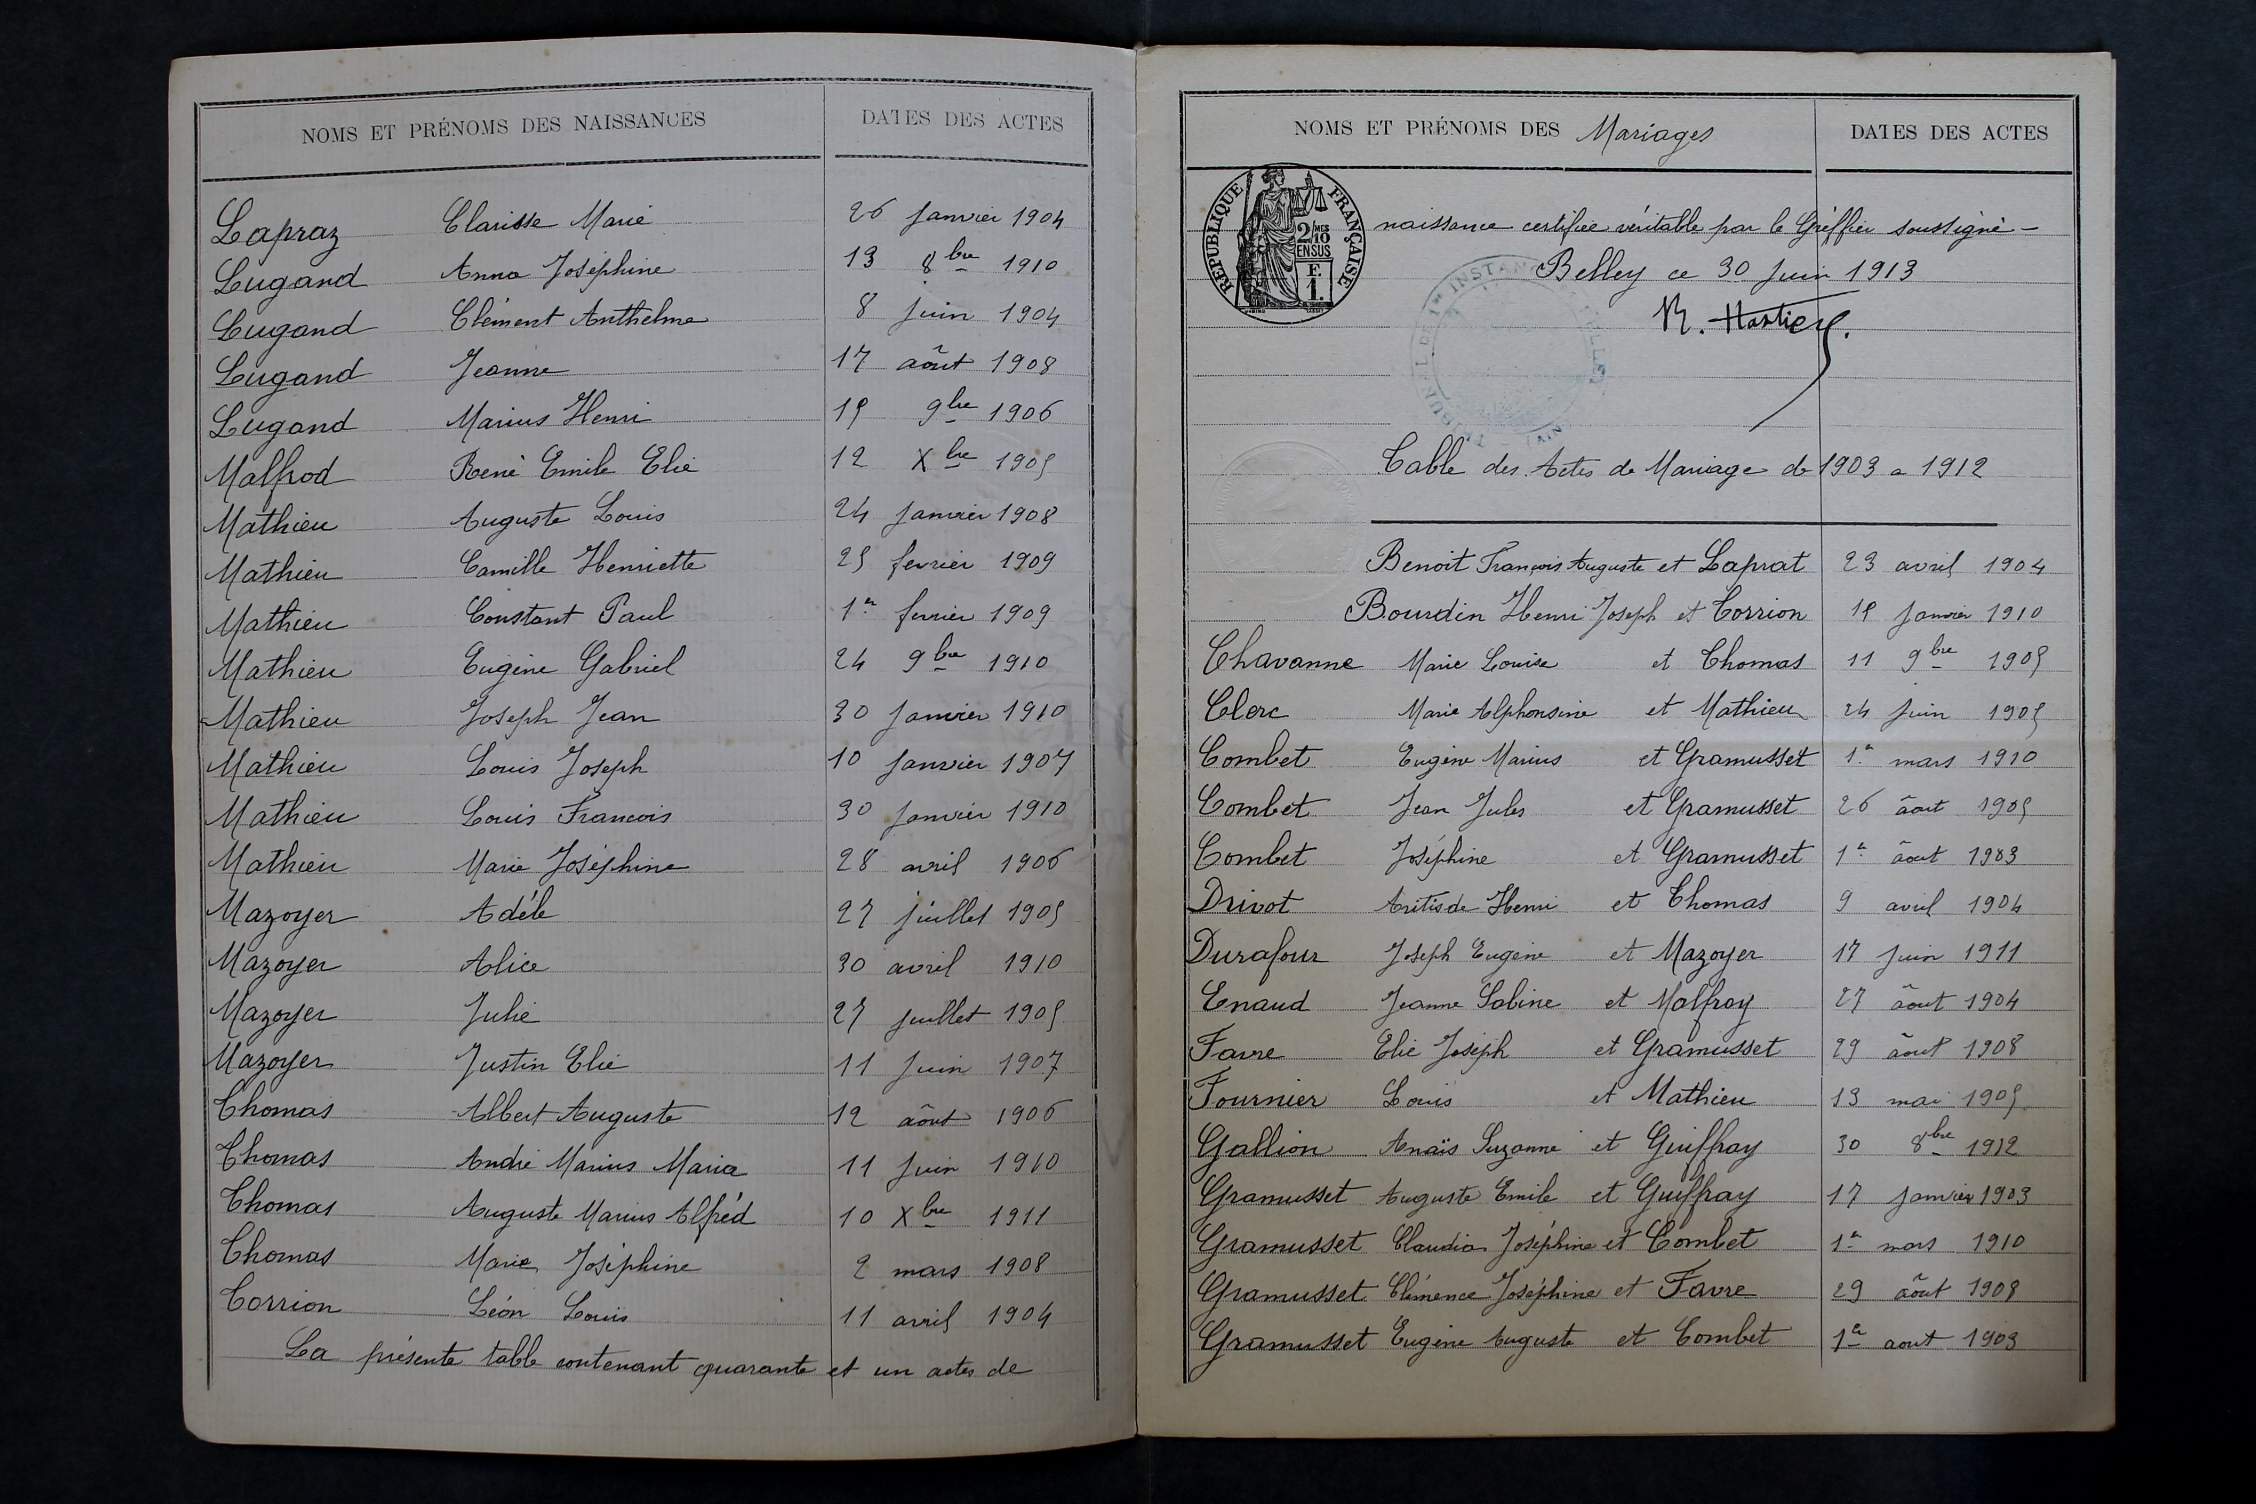 NOMS ET PRÉNOMS DES NAISSANCES DATES DES ACTES
Lapraz Clarisse Marie 26 janvier 1904
Lugand Anna Joséphine 13 8bre 1910
Lugand Clément Anthelme 8 juin 1904
Lugand Jeanne 17 août 1908
Lugand Marius Henri 15 9bre 1906
Malfrod René Emile Elie 12 Xbre 1905
Mathieu Auguste Louis 24 janvier 1908
Mathieu Camille Henriette 25 fevrier 1909
Mathieu Constant Paul 1er fevrier 1909
Mathieu Eugène Gabriel 24 9bre 1910
Mathieu Joseph Jean 30 janvier 1910
Mathieu Louis Joseph 10 janvier 1907
Mathieu Louis Francois 30 janvier 1910
Mathieu Marie Joséphine 28 avril 1906
Mazoyer Adéle 27 juillet 1905
Mazoyer Alice 30 avril 1910
Mazoyer Julie 27 juillet 1905
Mazoyer Justin Elie 11 juin 1907
Thomas Albert Auguste 12 août 1906
Thomas André Marius Maria 11 juin 1910
Thomas Auguste Marius Alfréd 10 Xbre 1911
Thomas Marie Joséphine 2 mars 1908
Torrion Léon Louis 11 avril 1904
La présente table contenant quarante et un actes de
NOMS ET PRÉNOMS DES Mariages DATES DES ACTES
RÉPUBLIQUE FRANÇAISE
2 MES 10
EN SUS
F.
1.
naissance certifiée véritable par le Gréffier soussigné -
Belley ce 30 Juin 1913
Table des Actes de Mariage de 1903 a 1912
Benoit François Auguste et Laprat 23 avril 1904
Bourdin Henri Joseph et Torrion 15 janvier 1910
Chavanne Marie Louise et Thomas 11 9bre 1905
Clerc Marie Alphonsine et Mathieu 24 juin 1905
Combet Eugène Marius et Gramusset 1er mars 1910
Combet Jean Jules et Gramusset 26 âout 1905
Combet Joséphine et Gramusset 1er âout 1903
Drivot Aritisde Henri et Thomas 9 avril 1904
Durafour Joseph Eugène et Mazoyer 17 juin 1911
Enaud Jeanne Sabine et Malfroy 27 âout 1904
Favre Elie Joseph et Gramusset 29 âout 1908
Fournier Louis et Mathieu 13 mai 1905
Gallion Anaïs Suzanne et Guiffray 30 8bre 1912
Gramusset Auguste Emile et Guiffray 17 janvier 1903
Gramusset Claudia Joséphine et Combet 1er mars 1910
Gramusset Clémence Joséphine et Favre 29 âout 1908
Gramusset Eugène Auguste et Combet 1er aout 1903